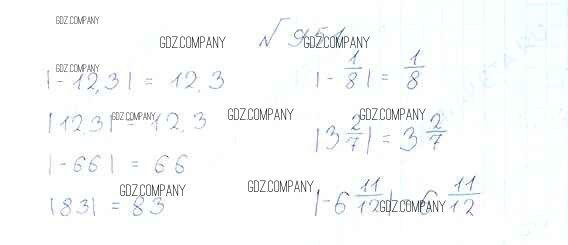 № 951
|-12,3| = 12,3
|12,3| = 12,3
|-66| = 66
|83| = 83
|-1/8| = 1/8
|3 2/7| = 3 2/7
|-6 11/12| = 6 11/12
GDZ.COMPANY
GDZ.COMPANY
GDZ.COMPANY
GDZ.COMPANY
GDZ.COMPANY
GDZ.COMPANY
GDZ.COMPANY
GDZ.COMPANY
GDZ.COMPANY
GDZ.COMPANY